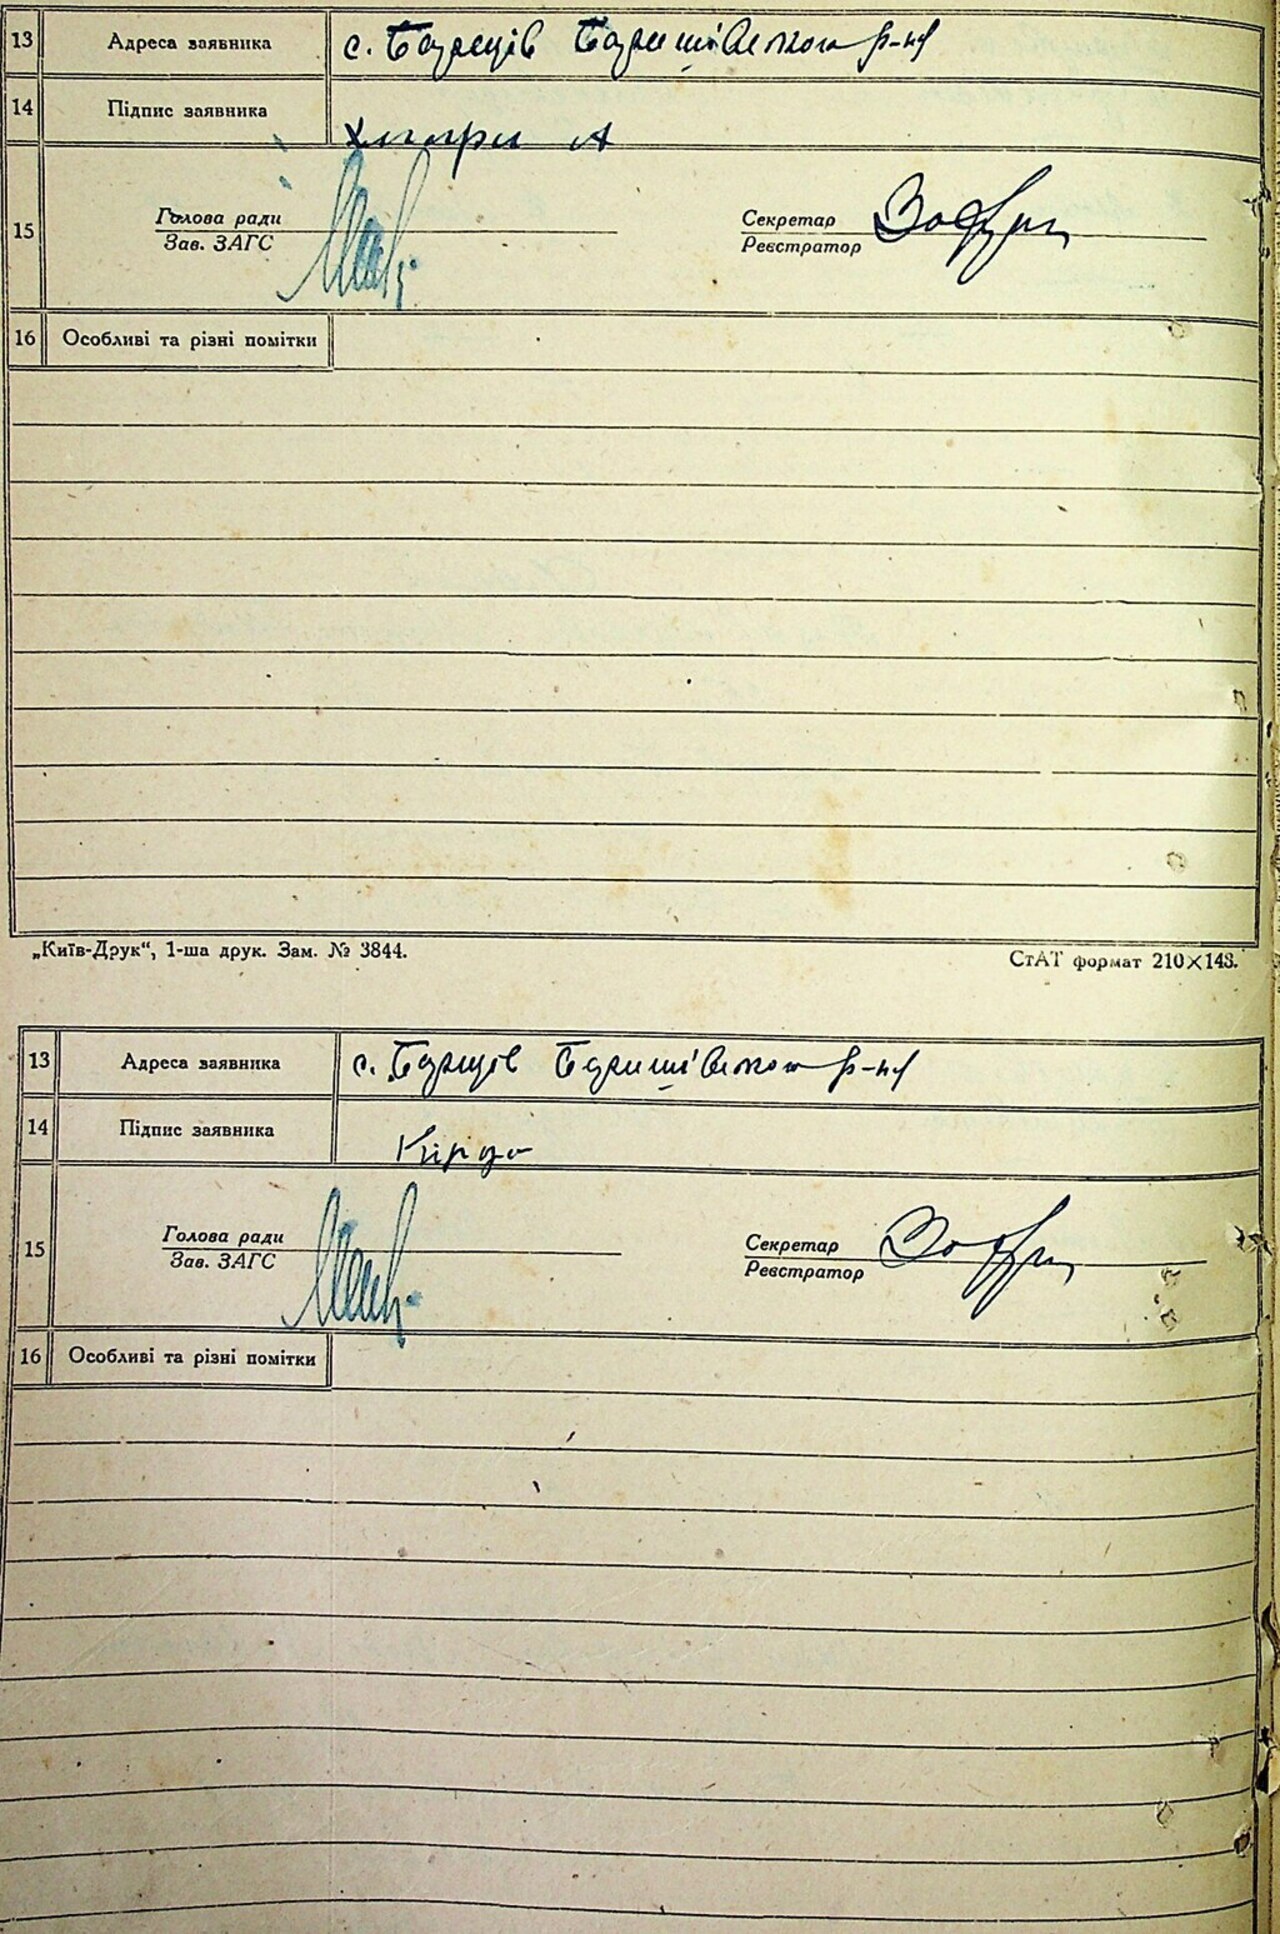 13 Адреса заявника с. Борщів Баришівського р-ну
14 Підпис заявника
Голова ради Секретар
15
Зав. ЗАГС Реєстратор
16 Особливі та різні помітки
„Київ-Друк“, 1-ша друк. Зам. № 3844. СтАТ формат 210×143.
13 Адреса заявника с. Борщів Баришівського р-ну
14 Підпис заявника
Голова ради Секретар
15
Зав. ЗАГС Реєстратор
16 Особливі та різні помітки